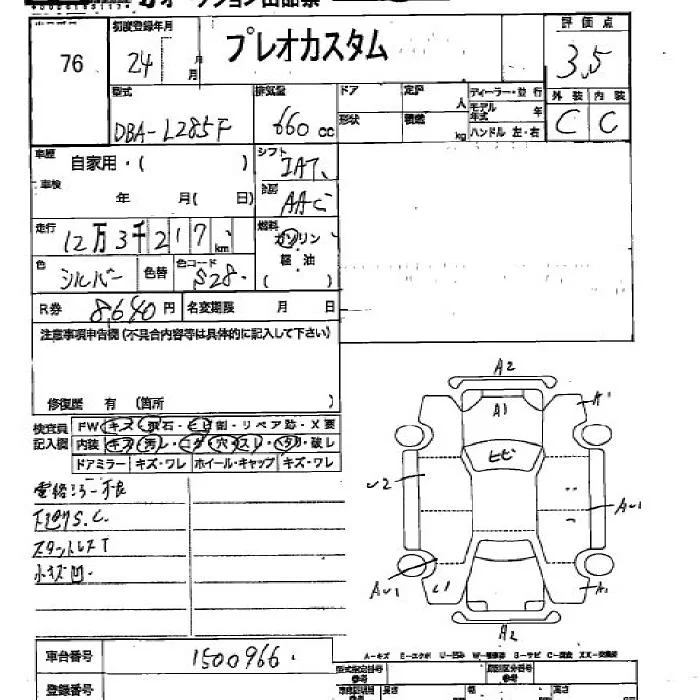 初度登録年月
評価点
76
24
月
月
プレオカスタム
3.5
型式
排気量
ドア
定員
人
ディーラー・並行
外装
内装
形状
積載
kg
モデル年式
年
ハンドル 左・右
DBA-L285F
660 cc
C
C
車歴
自家用・( )
シフト
IAT
車検
年 月( 日)
冷房
AAC
走行
12万3千217 km
燃料
ガソリン
軽油
( )
色
シルバー
色替
色コード
S28.
R券
8,640円
名変期限 月 日
注意事項申告欄(不具合内容等は具体的に記入して下さい)
修復歴 有 (箇所 )
検査員記入欄
FW キズ・飛石・ヒビ割・リペア跡・X要
内装 キズ・汚レ・コゲ・穴・スレ・タリ・破レ
ドアミラー キズ・ワレ
ホイール・キャップ キズ・ワレ
電格ミラー不良
下廻りS.C.
スタットレスT
小キズ凹.
A2
A1
A1
ヒビ
U2
AU1
AU1
C1
A1
A2
車台番号
1500966.
登録番号
A-キズ E-エクボ U-凹み W-補修跡 S-サビ C-腐食 XX-交換済
型式指定番号
参考
類別区分番号
参考
長さ
幅
高さ